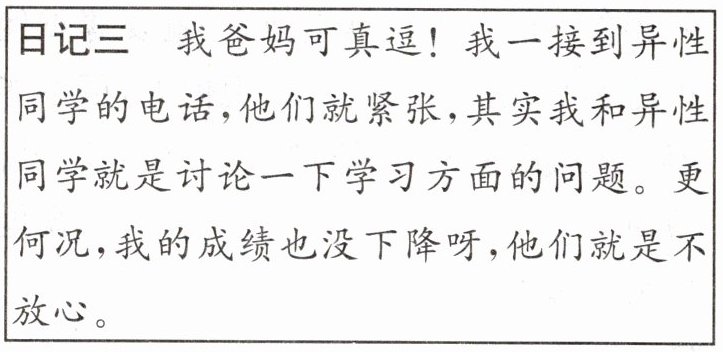 日记三　我爸妈可真逗！我一接到异性
同学的电话,他们就紧张,其实我和异性
同学就是讨论一下学习方面的问题。更
何况,我的成绩也没下降呀,他们就是不
放心。